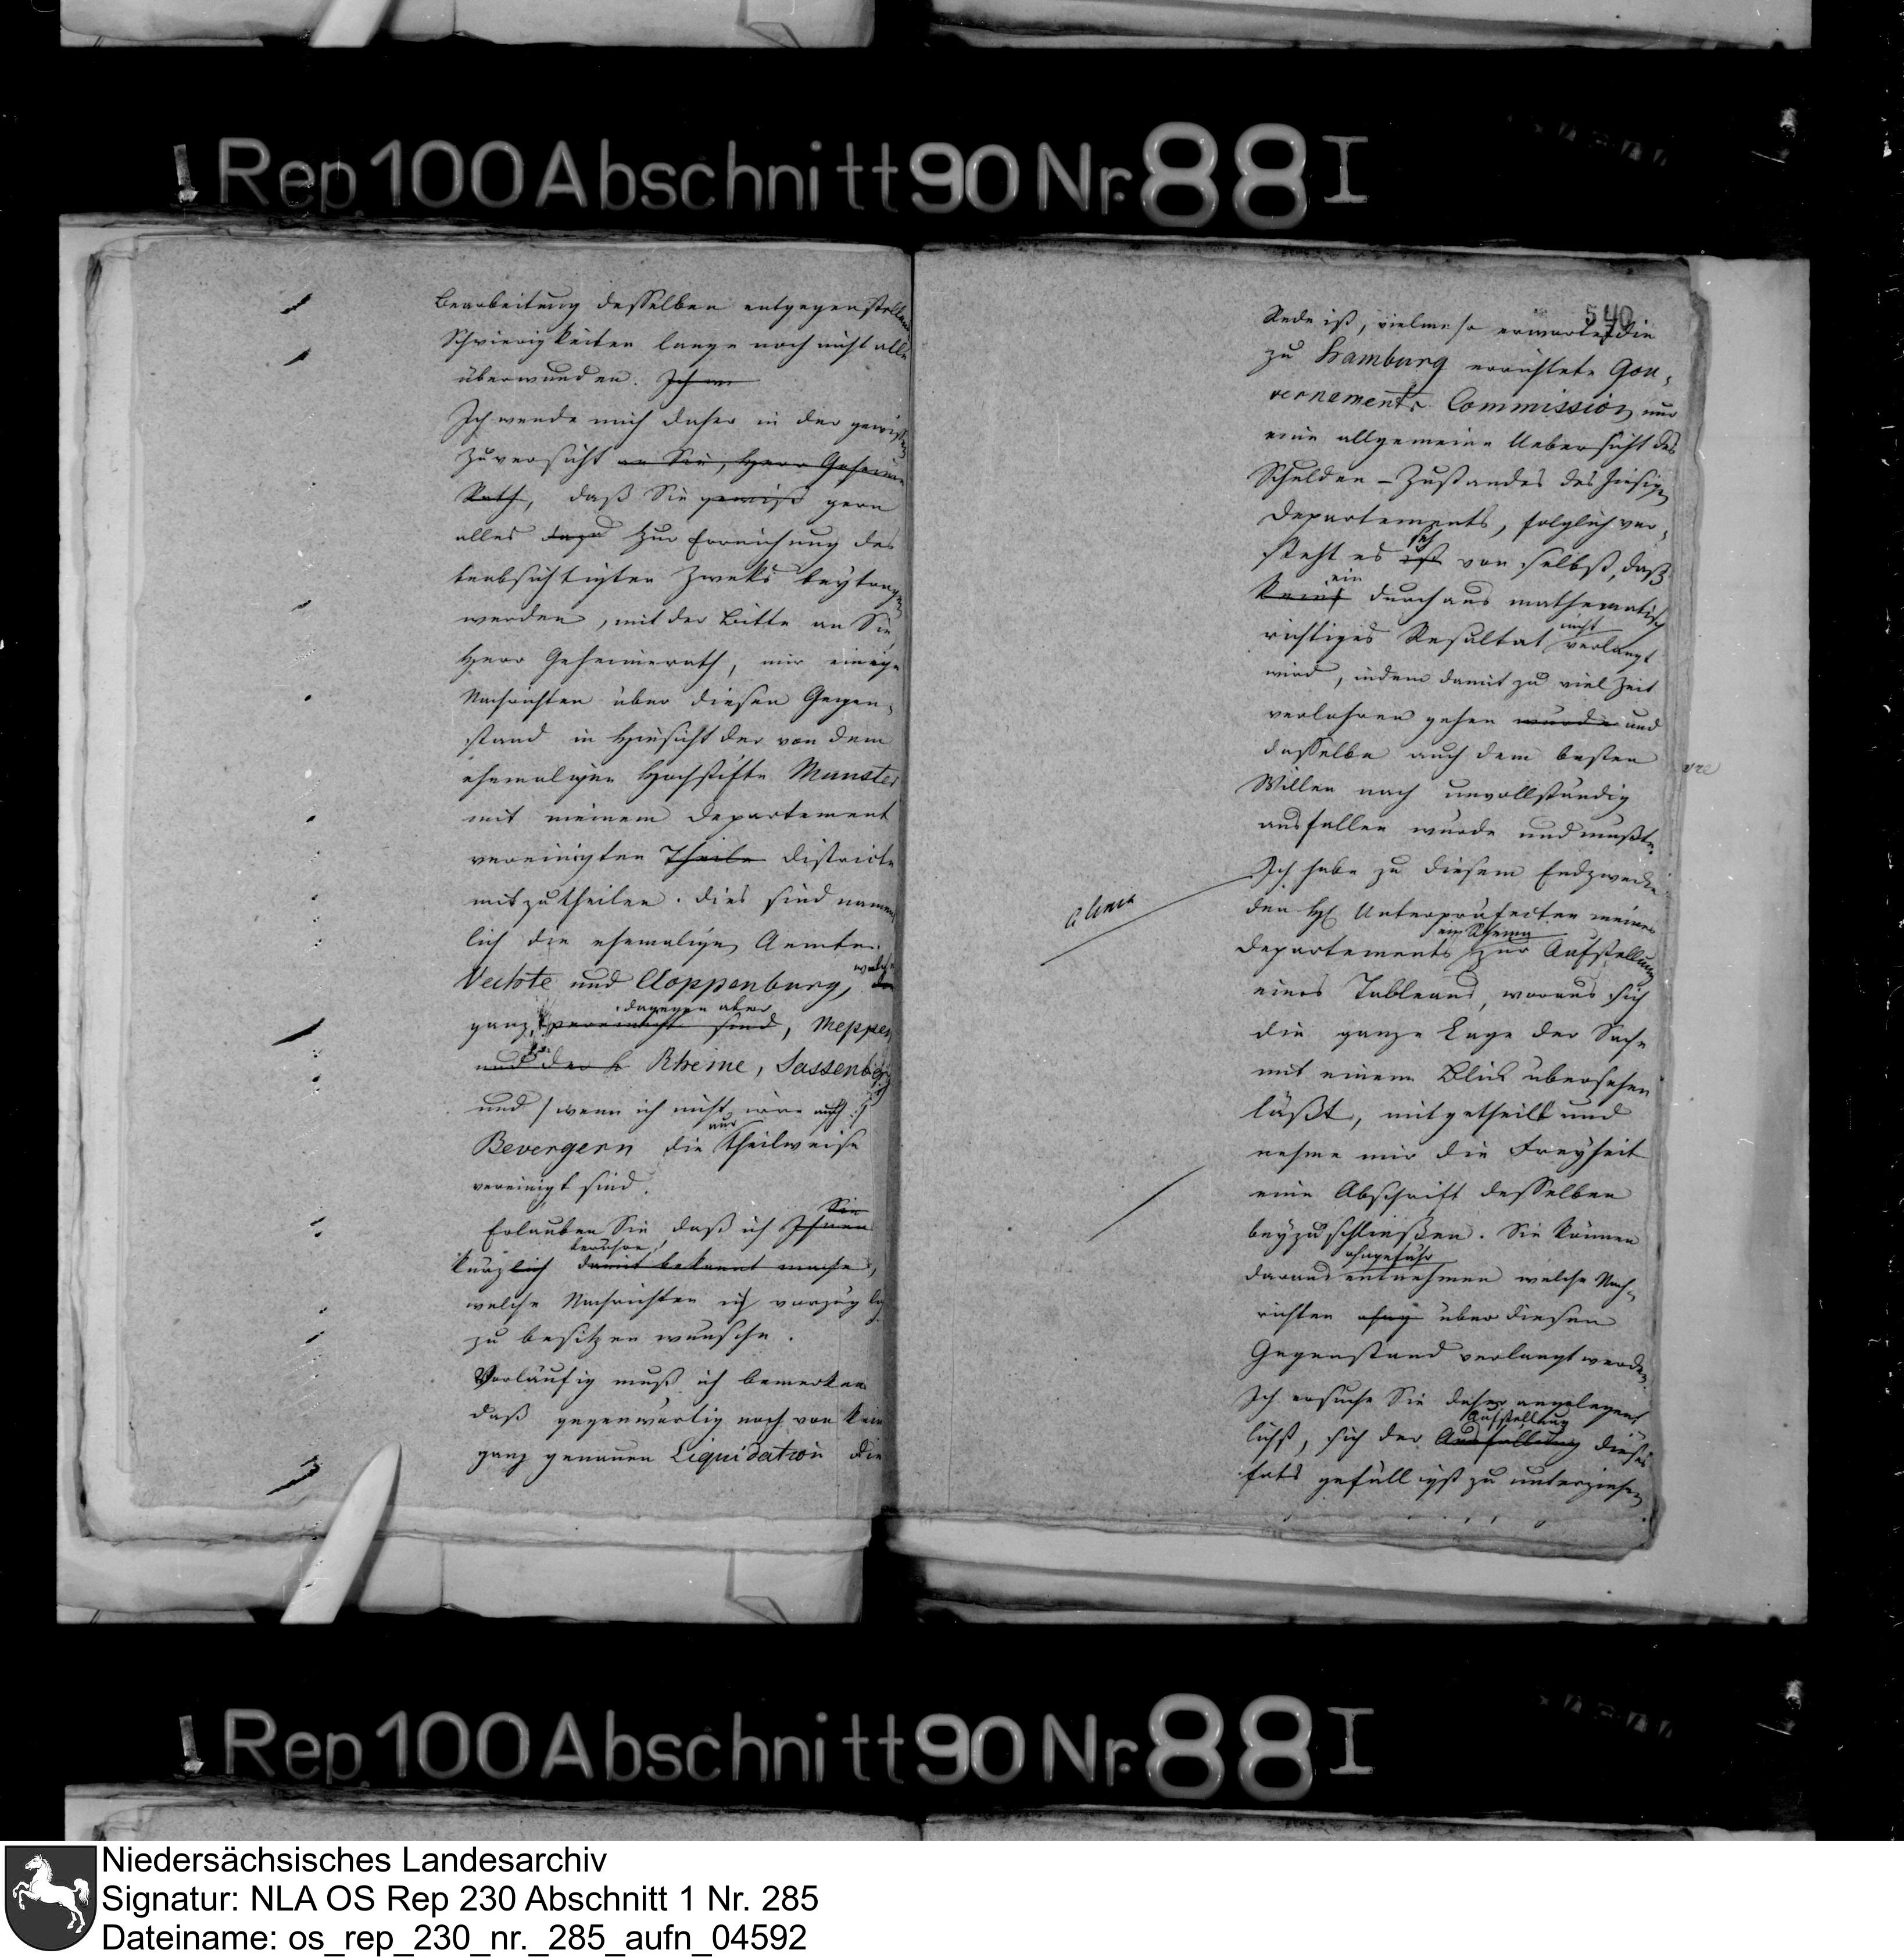 Rep. 100 Abschnitt 90 Nr. 88 I
Bearbeitung desselben entgegenstellenden
Schwierigkeiten lange noch nicht alle
überwunden. Ich we
Ich wende mich daher in der gewissen
Zuversicht an Sie, Herr Geheime
Rath, daß Sie gewiß gern
alles dazu zur Erreichung des
beabsichtigten Zweks beytragen
werden, mit der Bitte an Sie
Herr Geheimerath, mir einige
Nachrichten über diesen Gegen-
stand in Hinsicht der von dem
ehemaligen Hochstifte Munster
mit meinem Departement
vereinigten Theile Districte
mitzutheilen. Dies sind nament
lich die ehemaligen Aemter
welche
Vechte und Cloppenburg, die
dagegen aber
ganz, vereinigt sind, Meppen
und der Rheine, Sassenberg
und / wenn ich nicht irre auch /
nur
Bevergern die theilweise
vereinigt sind.
Sie
Erlauben Sie, daß ich Ihnen
kurzlich damit bekannt mache,
welche Nachrichten ich vorzüglich
zu besitzen wunsche.
Vorläufig muß ich bemerken
daß gegenwärtig noch von kein
ganz genauen Liquidation die
540
Rede ist, vielmehr erwartet die
zu Hamburg errichtete Gou-
vernements Commission nur
eine allgemeine Uebersicht des
Schulden-Zustandes des hiesigen
Departements, folglich ver-
sich
steht es ist von selbst, daß
ein
kein durchaus mathematisch
nicht
richtiges Resultat verlangt
wird, indem damit zu viel Zeit
verlohren gehen wurde und
dasselbe auch dem besten
Willen nach unvollständig
ausfallen wurde und mußte.
alinea
Ich habe zu diesem Endzwecke
den H Unterpräfecten meines
ein Schema
Departements zur Aufstellung
eines Tableaus, woraus sich
die ganze Lage der Sache
mit einem Blick übersehen
läßt, mitgetheilt und
nehme mir die Freyheit
eine Abschrift desselben
beyzuschließen. Sie können
ohngefähr
daraus entnehmen welche Nach-
richten über diesen
Gegenstand verlangt werden.
Ich ersuche Sie daher angelegent
Aufstellung
lichst, sich der Ausfüllung dieses
gefälligst zu unterziehen
Rep. 100 Abschnitt 90 Nr. 88 I
Niedersächsisches Landesarchiv
Signatur: NLA OS Rep 230 Abschnitt 1 Nr. 285
Dateiname: os_rep_230_nr._285_aufn_04592